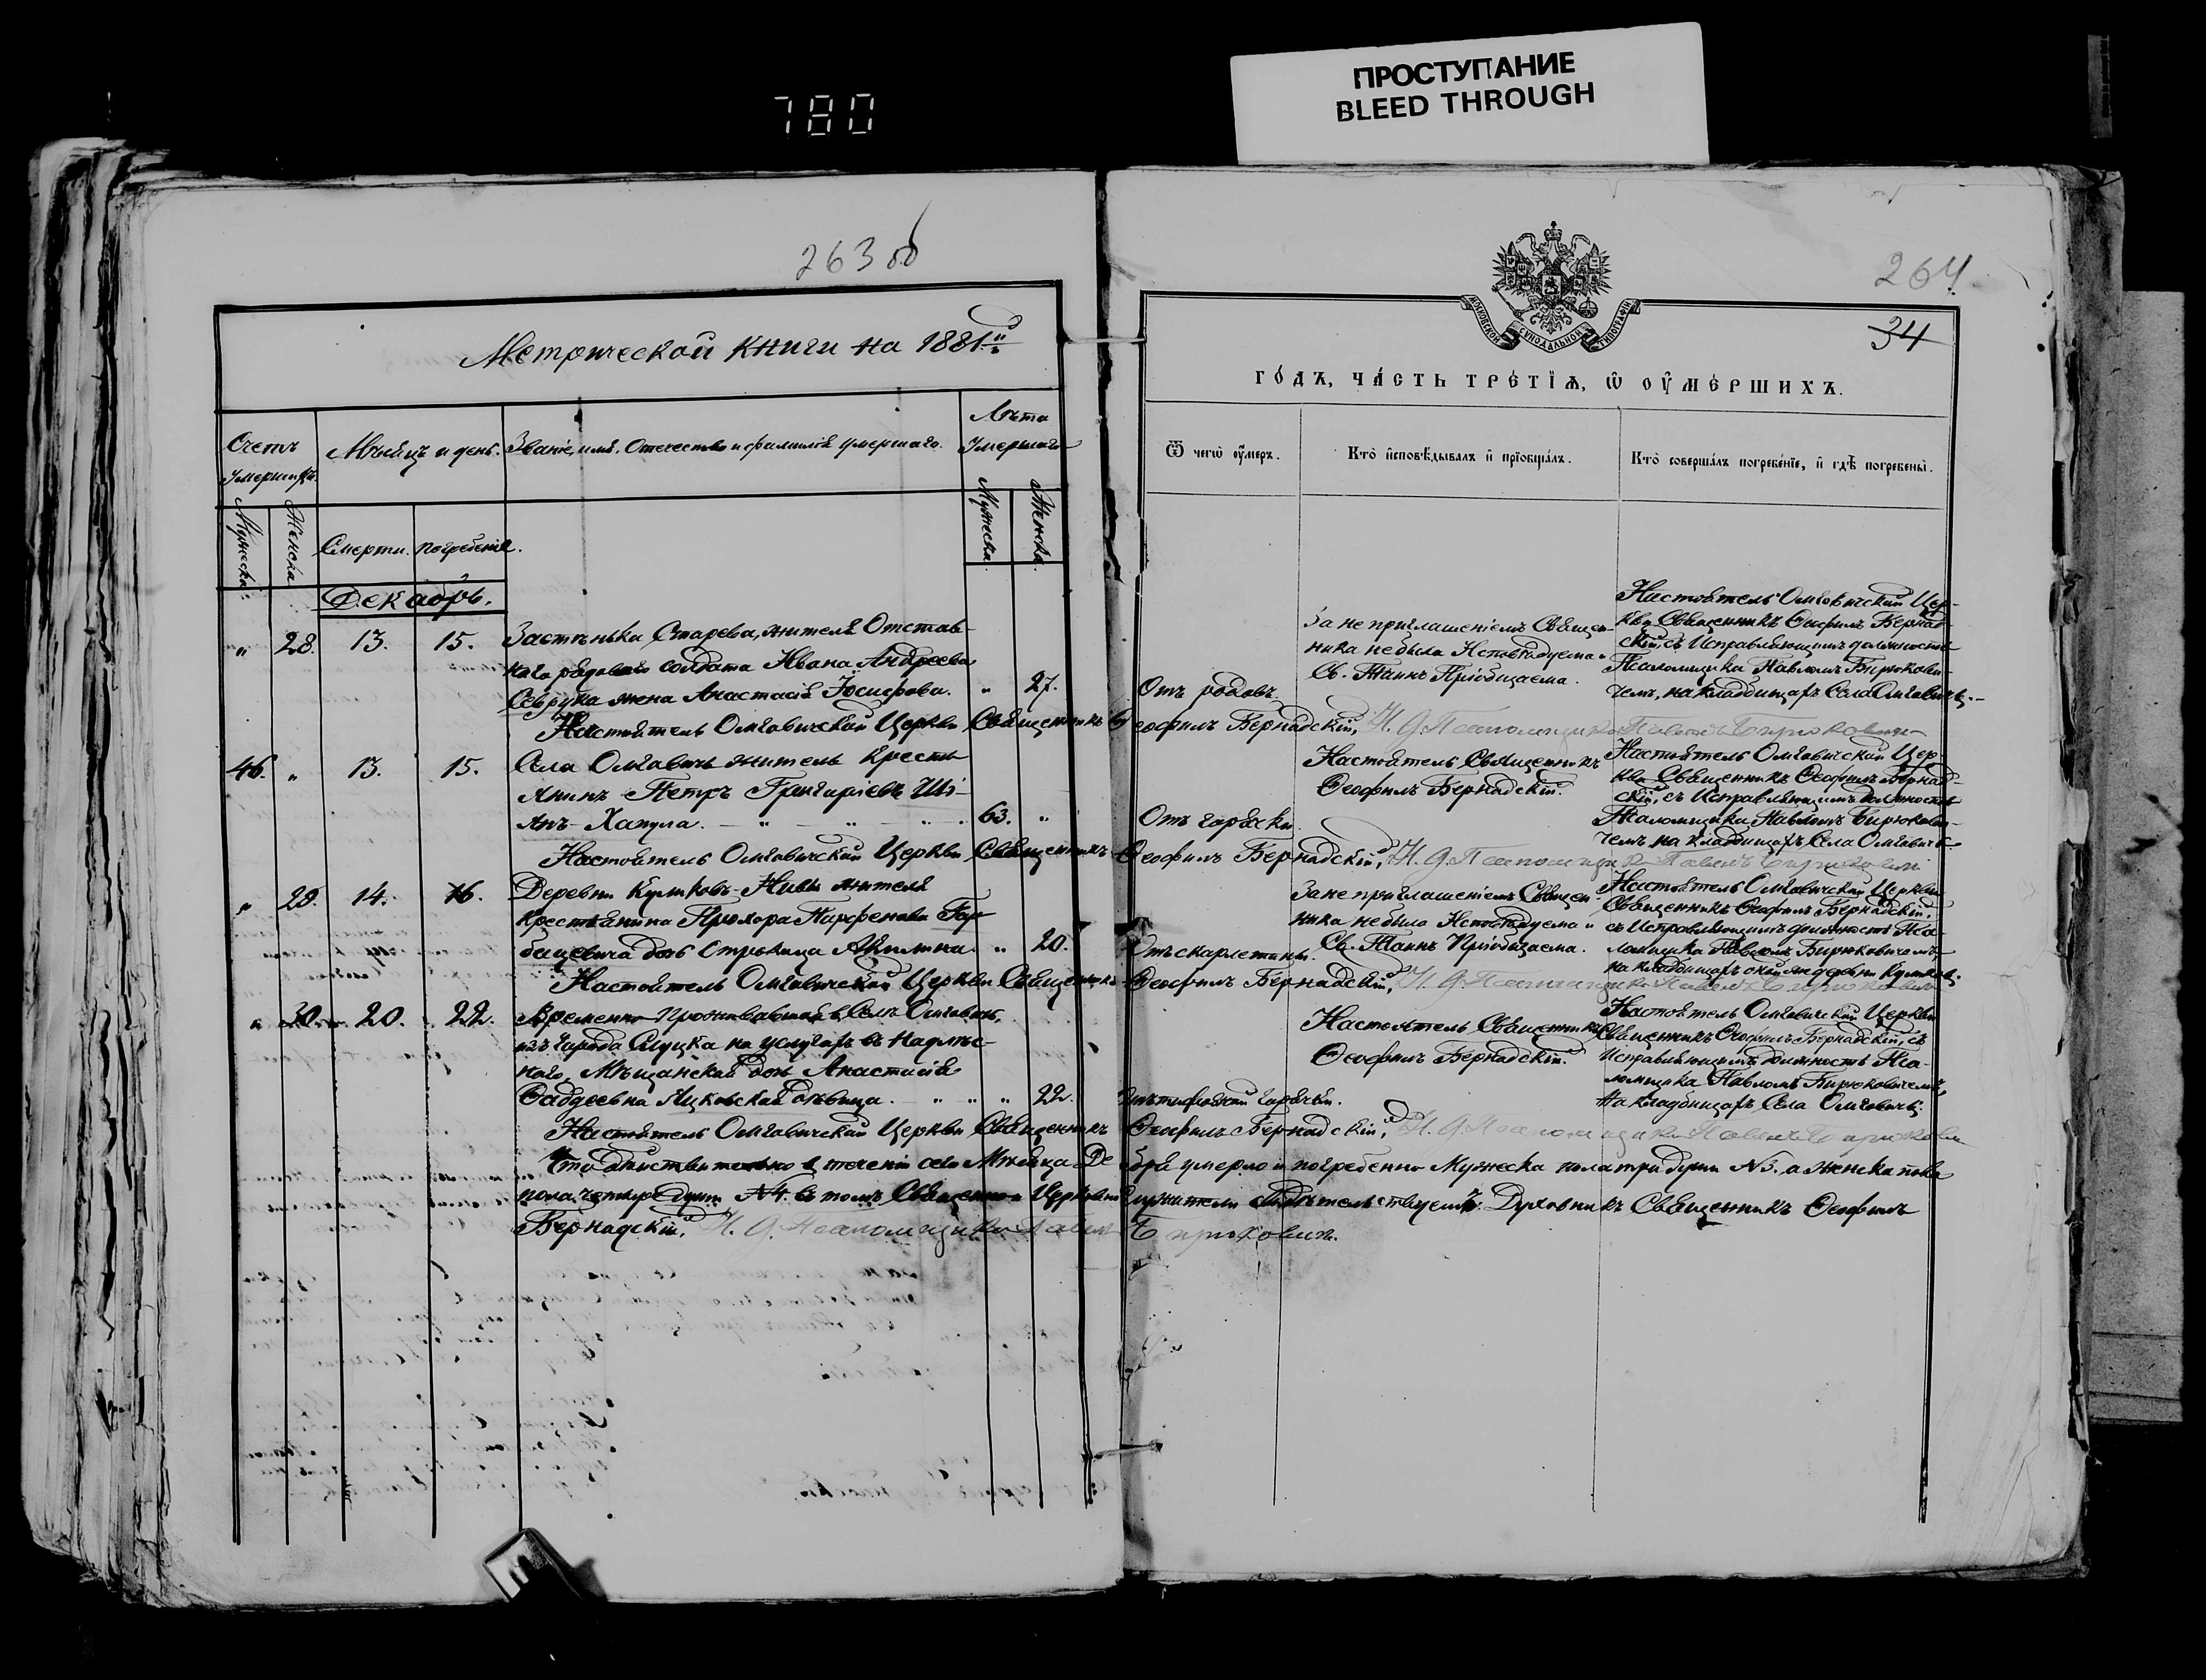 ПРОСТУПАНИЕ
BLEED THROUGH
780
263 об
264
34
Метрической книги на 1881й
МОСКОВСКОЙ СѴНОДАЛЬНОЙ ТИПОГРАФІИ
го́дъ, ча́сть тре́тїѧ, ѡ҆ оу҆ме́ршихъ.
Счетъ умершихъ.
Мѣсяцъ и день.
Званіе, имя, Отечество и фамилія умершаго.
Лѣта Умершаго
Ѿ чегѡ̀ оу҆́меръ.
Кто̀ и҆сповѣ́дывалъ и҆ прїобща́лъ.
Кто̀ соверша́лъ погребе́нїе, и҆ гдѣ̀ погребены̀.
Мужеска
Женска
Смерти.
погребенія.
Мужеска.
Женска.
Декабрь.
„ 28. 13. 15.
Застѣнька Старева, жителя Отстав-
наго рядоваго солдата Ивана Андреева
Севрука жена Анастасія Іосифова. „ 27.
Отъ родовъ.
За не приглашеніемъ Священ-
ника не была Исповѣдуема и
Св. Таинъ Пріобщаема.
Настоятель Омговичской Цер-
кви Священникъ Ѳеофилъ Бернад-
скій, съ Исправляющимъ должность
Псаломщика Павломъ Бирюкови-
чемъ, на кладбищахъ Села Омговичъ.
Настоятель Омговичской Церкви Священникъ Ѳеофилъ Бернадскій, И. д. Псаломщика Павелъ Бирюковичъ
46. „ 13. 15.
Села Омговичъ житель Крестья
янинъ Петръ Григоріевъ Ши-
янъ-Хапула. — „ „ „ 63. „
Отъ горячки.
Настоятель Священникъ
Ѳеофилъ Бернадскій.
Настоятель Омговичской Цер
кви Священникъ Ѳеофилъ Бернад-
скій, съ Исправляющимъ должность
Псаломщика Павломъ Бирюкови-
чемъ на кладбищахъ Села Омговичъ.
Настоятель Омговичской Церкви Священникъ Ѳеофилъ Бернадскій, И. д. Псаломщика Павелъ Бирюковичъ
„ 29. 14. 16.
Деревни Куликовъ-Нивы жителя
крестьянина Парфенова
дочь Отроковица Акилина. „ 20.
Отъ скарлетины.
За не приглашеніемъ Священ-
ника не была Исповѣдуема и
Св. Таинъ Пріобщаема.
Настоятель Омговичской Церкви
Священникъ Ѳеофилъ Бернадскій,
съ Исправляющимъ должность Пса-
ломщика Павломъ Бирюковичемъ
на кладбищахъ деревни Куликов.
Настоятель Омговичской Церкви Священникъ Ѳеофилъ Бернадскій, И. д. Псаломщика Павелъ Бирюковичъ
„ 30. 20. 22.
Временно проживавшая въ Селѣ Омговичъ,
изъ города Слуцка на услугахъ
Мѣщанской дочь Анастасія
Ѳаддеевна дѣвица. „ „ „ 22.
горячки.
Настоятель Священникъ
Ѳеофилъ Бернадскій.
Настоятель Омговичской Церкви
Священникъ Ѳеофилъ Бернадскій, съ
Исправляющимъ должность Пса-
ломщика Павломъ Бирюковичемъ,
На кладбищахъ Села Омговичъ.
Настоятель Омговичской Церкви Священникъ Ѳеофилъ Бернадскій, И. д. Псаломщика Павелъ Бирюковичъ
Что дѣйствительно въ теченіи сего Мѣсяца Декабря умерло и погребенно Мужеска пола три души №3. а женска пола
пола четыре души №4. въ томъ Священно и Церковно Служители Свидѣтельствуемъ. Духовникъ Священникъ Ѳеофилъ
Бернадскій. И. д. Псаломщика Павелъ Бирюковичъ.